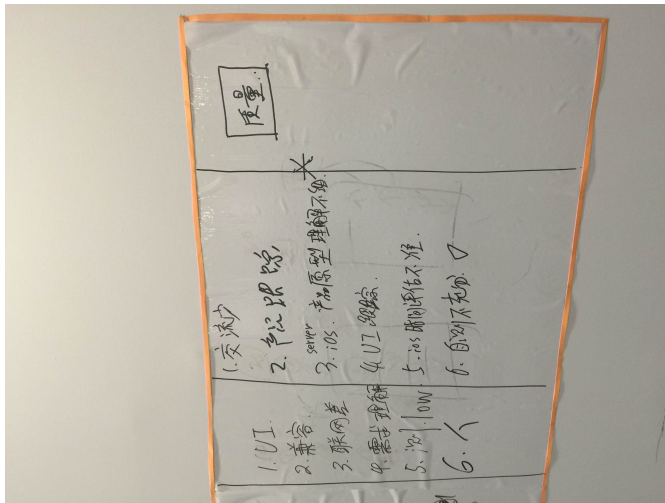 质量
1. 交流少
2. 跟踪
server
3. ios. 产品原型理解不够.
4. UI 跟踪.
5. ios 时间评估不准.
6. 自测不充分.
1. UI.
2. 兼容.
3. 联网差
4. 需求理解
5. 测 low.
6. 人